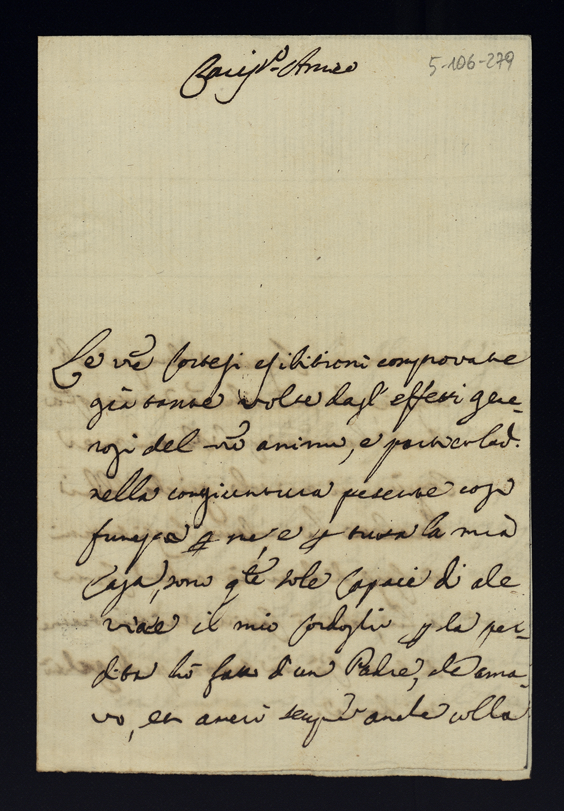 Cariss.º Amico
5-106-279
Le vre Cortesi esibitioni comprovate
già tante volte dagl' effetti gene-
rosi del vro animo, e particolar.
nella congiuntura presente così
funesta p me, e p tutta la mia
Casa, sono qte sole capaci di ale
viare il mio Cordoglio p la per-
dita hò fatta d'un Padre, che ama-
vo, et amerò sempre anche colla